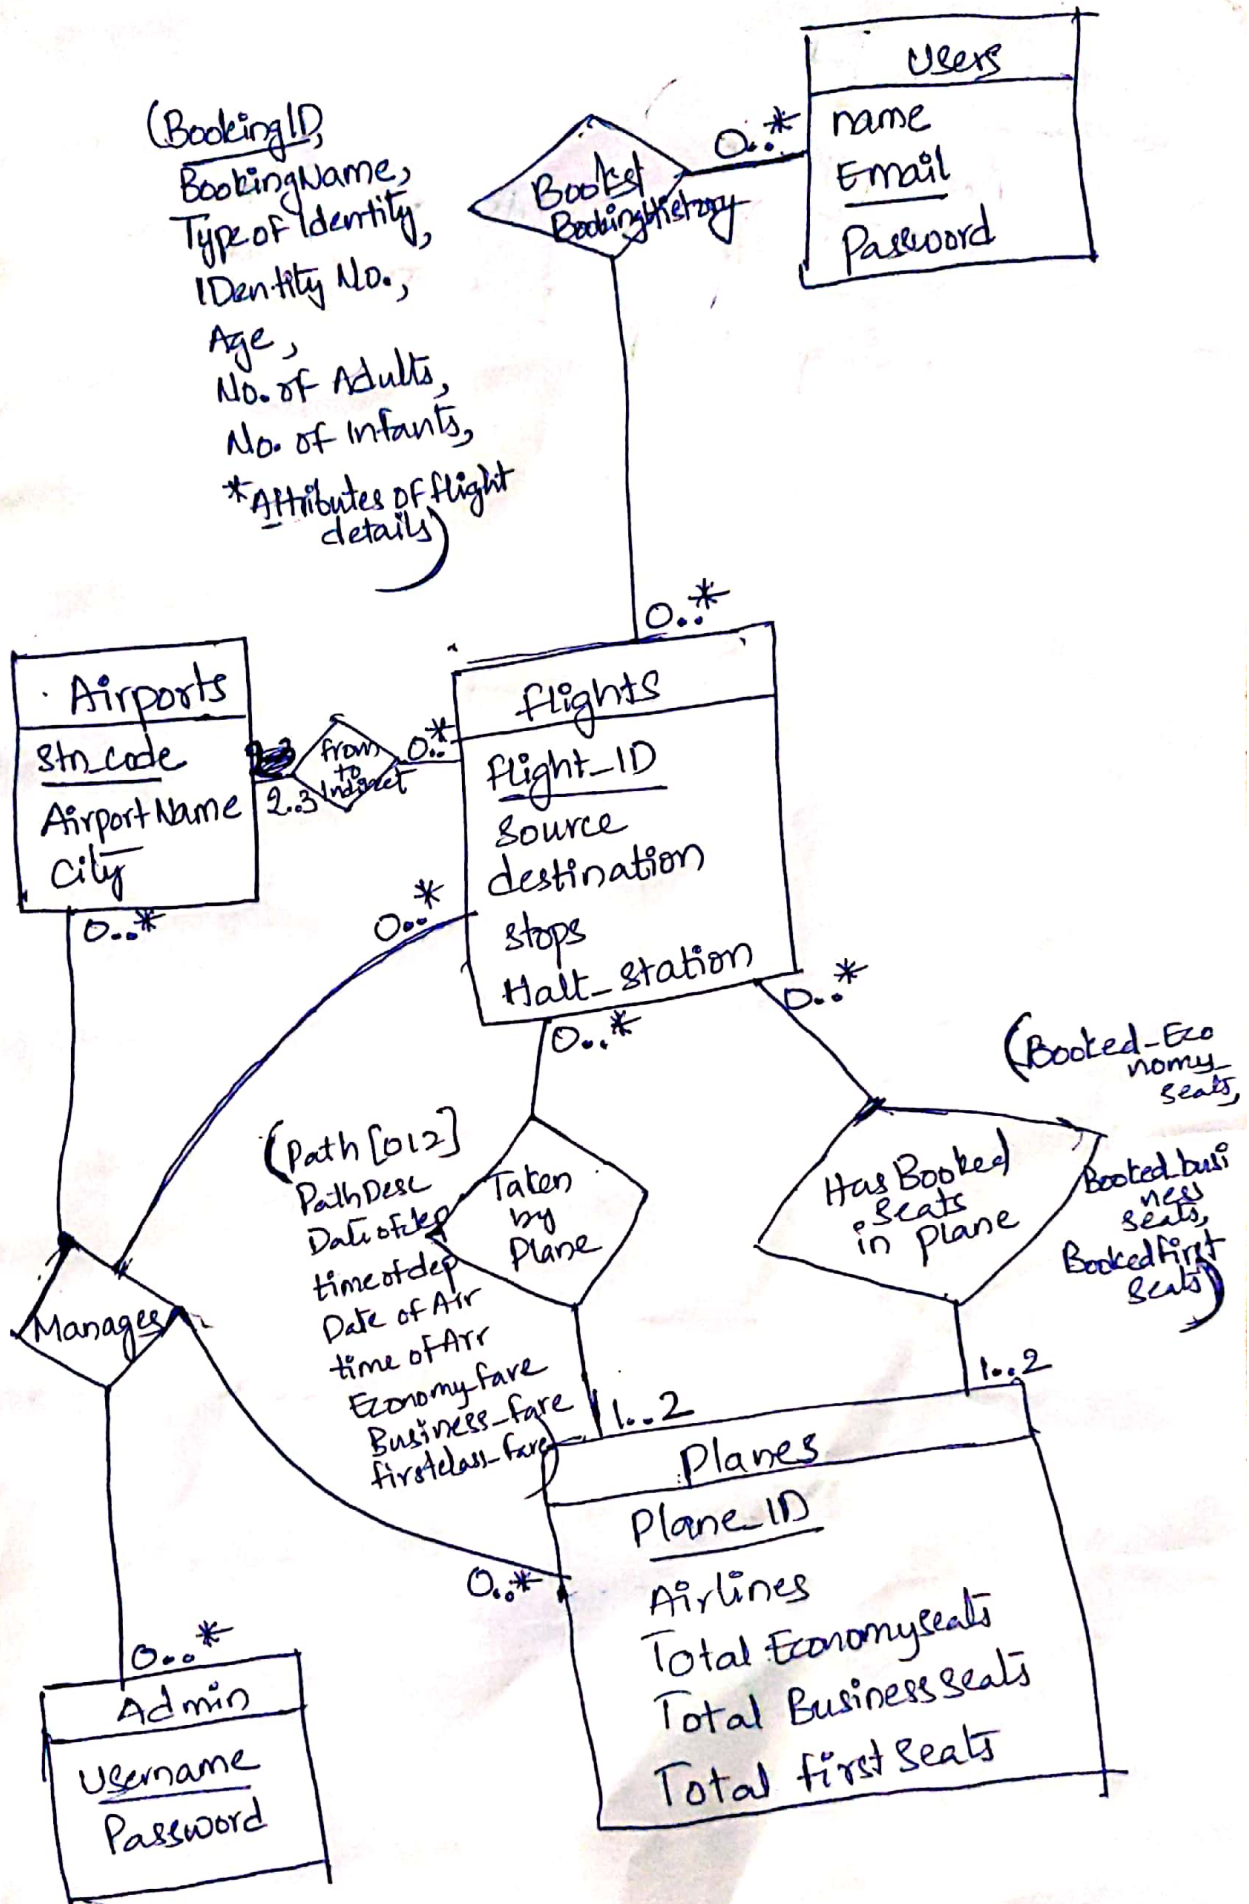 Users
name
Email
Password
0..*
(BookingID,
BookingName,
Type of Identity,
IDentity No.,
Age,
No. of Adults,
No. of Infants,
*Attributes of flight
details)
BookingHistory
0..*
Airports
Stn_code
AirportName
City
2.3
from
to
Indirect
0..*
flights
flight_ID
source
destination
stops
Halt_station
0..*
0..*
0..*
0..*
(Booked_Eco
nomy_
seats,
Booked_busi
ness
seats,
Bookedfirst
seats)
Has Booked
seats
in plane
(Path [012]
PathDesc
Date of dep
time of dep
Date of Arr
time of Arr
Economy_fare
Business_fare
firstclass_fare)
Taken
by
Plane
Manages
1..2
1..2
Planes
Plane_ID
Airlines
Total Economyseats
Total Business seats
Total first seats
0..*
0..*
Admin
Username
Password